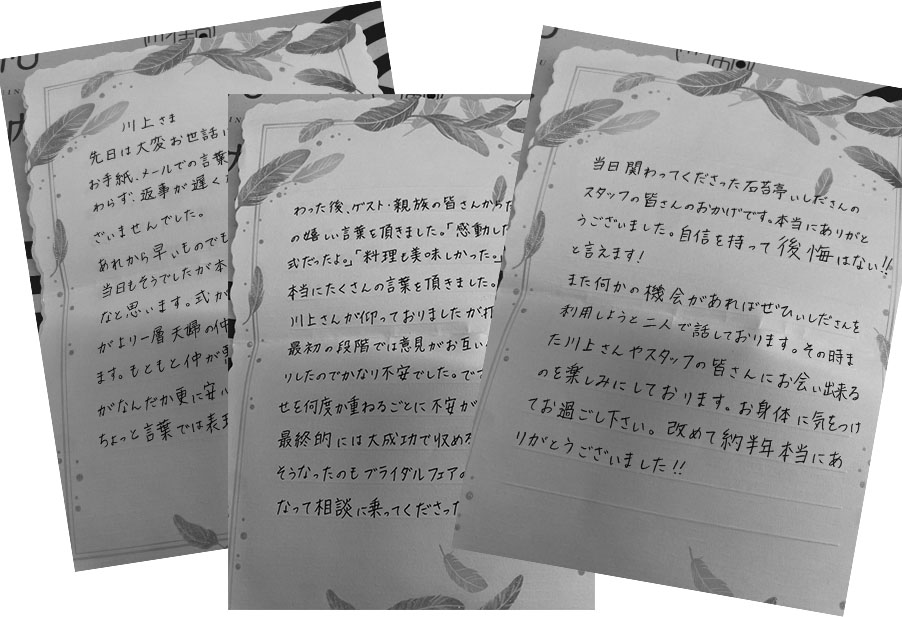 川上さま
先日は大変お世話に
お手紙、メールでの言葉
わらず、返事が遅く
ざいませんでした。
あれから早いものでも
当日もそうでしたが本
なと思います。式が
がより一層夫婦の仲
ます。もともと仲が
がなんだか更に安心
ちょっと言葉では表
わった後、ゲスト・親族の皆さんから
の嬉しい言葉を頂きました。「感動した
式だったよ。」「料理も美味しかった。」
本当にたくさんの言葉を頂きました。
川上さんが仰っておりましたが打
最初の段階では意見がお互い
りしたのでかなり不安でした。で
せを何度か重ねるごとに不安が
最終的には大成功で収め
そうなったのもブライダルフェアの
なって相談に乗ってくださった
当日関わってくださった石苔亭いしださんの
スタッフの皆さんのおかげです。本当にありがと
うございました。自信を持って後悔はない!!
と言えます!
また何かの機会があればぜひいしださんを
利用しようと二人で話しております。その時ま
た川上さんやスタッフの皆さんにお会い出来る
のを楽しみにしております。お身体に気をつけ
てお過ごし下さい。改めて約半年本当にあ
りがとうございました!!